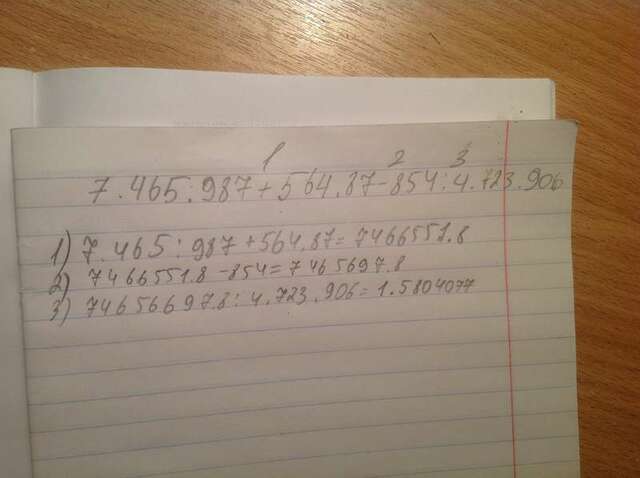 1 2 3
7.465:987+564.87-854:4.723.906
1) 7.465:987+564.87=7466551.8
2) 7466551.8-854=7465697.8
3) 74656697.8:4.723.906=1.5804077